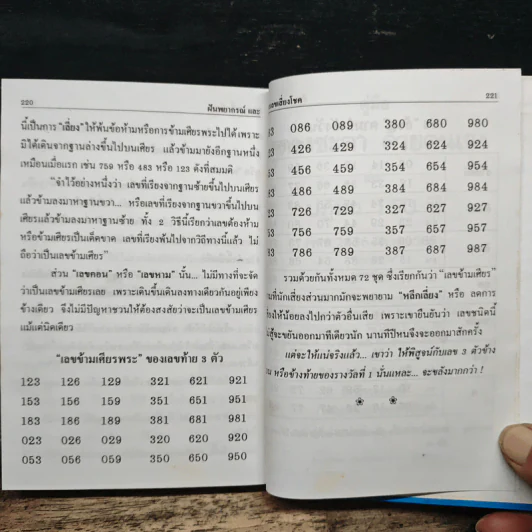 220
ฝันพยากรณ์ และ
นี้เป็นการ "เลี่ยง" ให้พ้นข้อห้ามหรือการข้ามเศียรพระไปได้ เพราะ
มิได้เดินจากฐานล่างขึ้นไปบนเศียร แล้วข้ามมายังอีกฐานหนึ่ง
เหมือนเมื่อแรก เช่น 759 หรือ 483 หรือ 123 ดังที่สมมติ
"จำไว้อย่างหนึ่งว่า เลขที่เรียงจากฐานซ้ายขึ้นไปบนเศียร
แล้วข้ามลงมาหาฐานขวา... หรือเลขที่เรียงจากฐานขวาขึ้นไปบน
เศียรแล้วข้ามลงมาหาฐานซ้าย ทั้ง 2 วิธีนี้เรียกว่าเลขต้องห้าม
หรือข้ามเศียรเป็นเด็ดขาด เลขที่เรียงพ้นไปจากวิถีทางนี้แล้ว ไม่
ถือว่าเป็นเลขข้ามเศียร"
ส่วน "เลขคอน" หรือ "เลขหาม" นั้น... ไม่มีทางที่จะจัด
ว่าเป็นเลขข้ามเศียรเลย เพราะเดินขึ้นเดินลงทางเดียวกันอยู่เพียง
ข้างเดียว จึงไม่มีปัญหาชวนให้ต้องสงสัยว่าจะเป็นเลขข้ามเศียร
แม้แต่นิดเดียว
"เลขข้ามเศียรพระ" ของเลขท้าย 3 ตัว
123 126 129 321 621 921
153 156 159 351 651 951
183 186 189 381 681 981
023 026 029 320 620 920
053 056 059 350 650 950
221
086 089 380 680 980
426 429 324 624 924
456 459 354 654 954
486 489 384 684 984
726 729 327 627 927
756 759 357 657 957
786 789 387 687 987
รวมด้วยกันทั้งหมด 72 ชุด ซึ่งเรียกกันว่า "เลขข้ามเศียร"
ที่นักเสี่ยงส่วนมากมักจะพยายาม "หลีกเลี่ยง" หรือ ลดการ
ให้น้อยลงไปกว่าตัวอื่นเสีย เพราะเขายืนยันว่า เลขชนิดนี้
จะขยันออกมาทีเดียวนัก นานทีปีหนจึงจะออกมาสักครั้ง
แต่จะให้แน่จริงแล้ว... เขาว่า ให้พิสูจน์กับเลข 3 ตัวข้าง
หรือข้างท้ายของรางวัลที่ 1 นั่นแหละ... จะขลังมากกว่า !